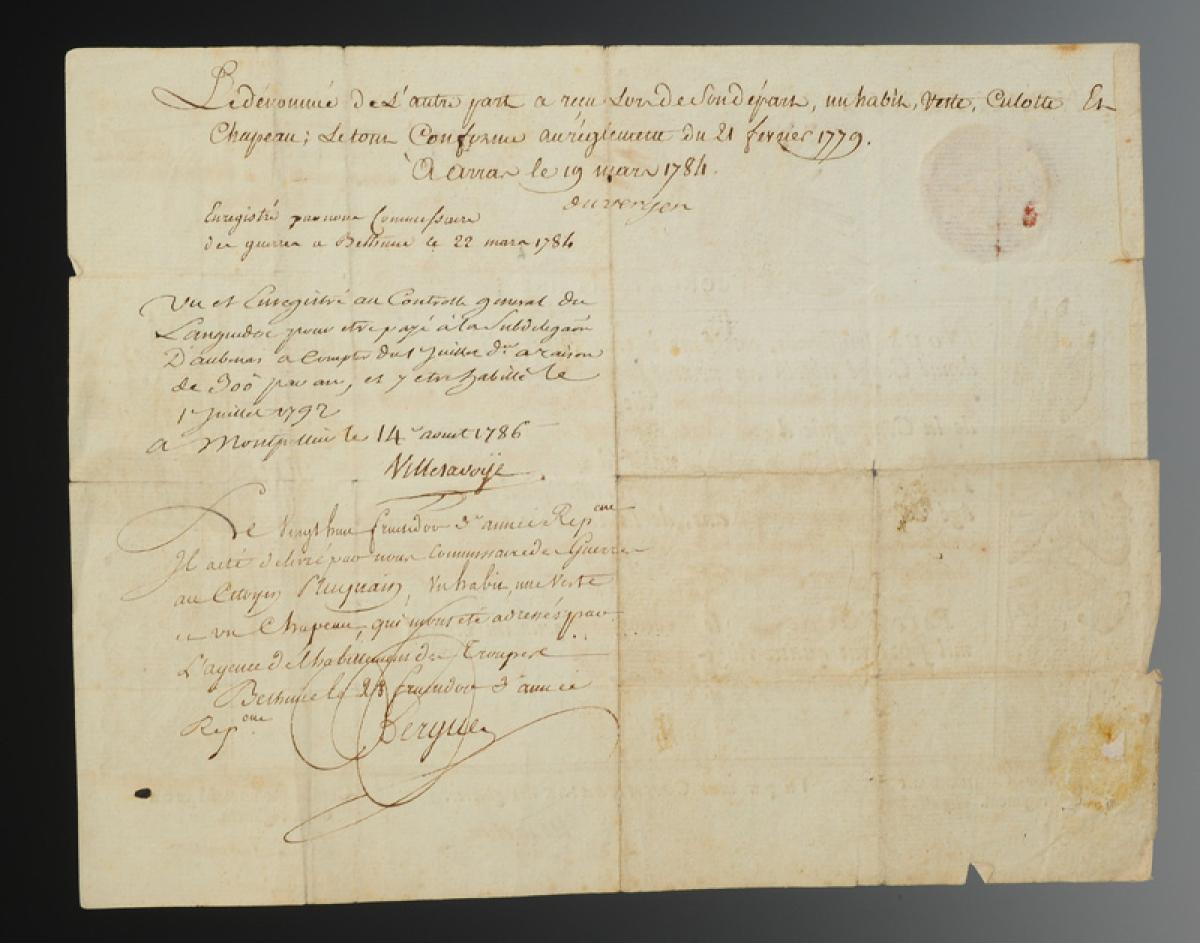 Le dénommé de L'autre part a reçu Lors de Son départ, un habit, Veste, Culotte Et
Chapeau; Le tout Conforme au réglement du 21 fevrier 1779.
à Arras le 19 mars 1784.
duverger
Enregistré par nous Commissaire
des guerres a Bethune le 22 mars 1784
Vu et Enregistré au Controlle general du
Languedoc pour etre payé à la Subdelegaõn
D'aubenas a Compter du 1er Juillet dr. a raison
de par an, et y etre habillé le
1er Juillet 1792
a Montpellier le 14 aoust 1786
Villesavoije
Le Vingt huit fructidor 3e année Repcne
Il a eté délivré par nous Commissaire des Guerres
au Citoyen un habit, une Veste
et un Chapeau, qui nous été adressés par
L'agence de l'habillement des Troupes
Bethune le 28 fructidor 3e année
Repcne
Dergue